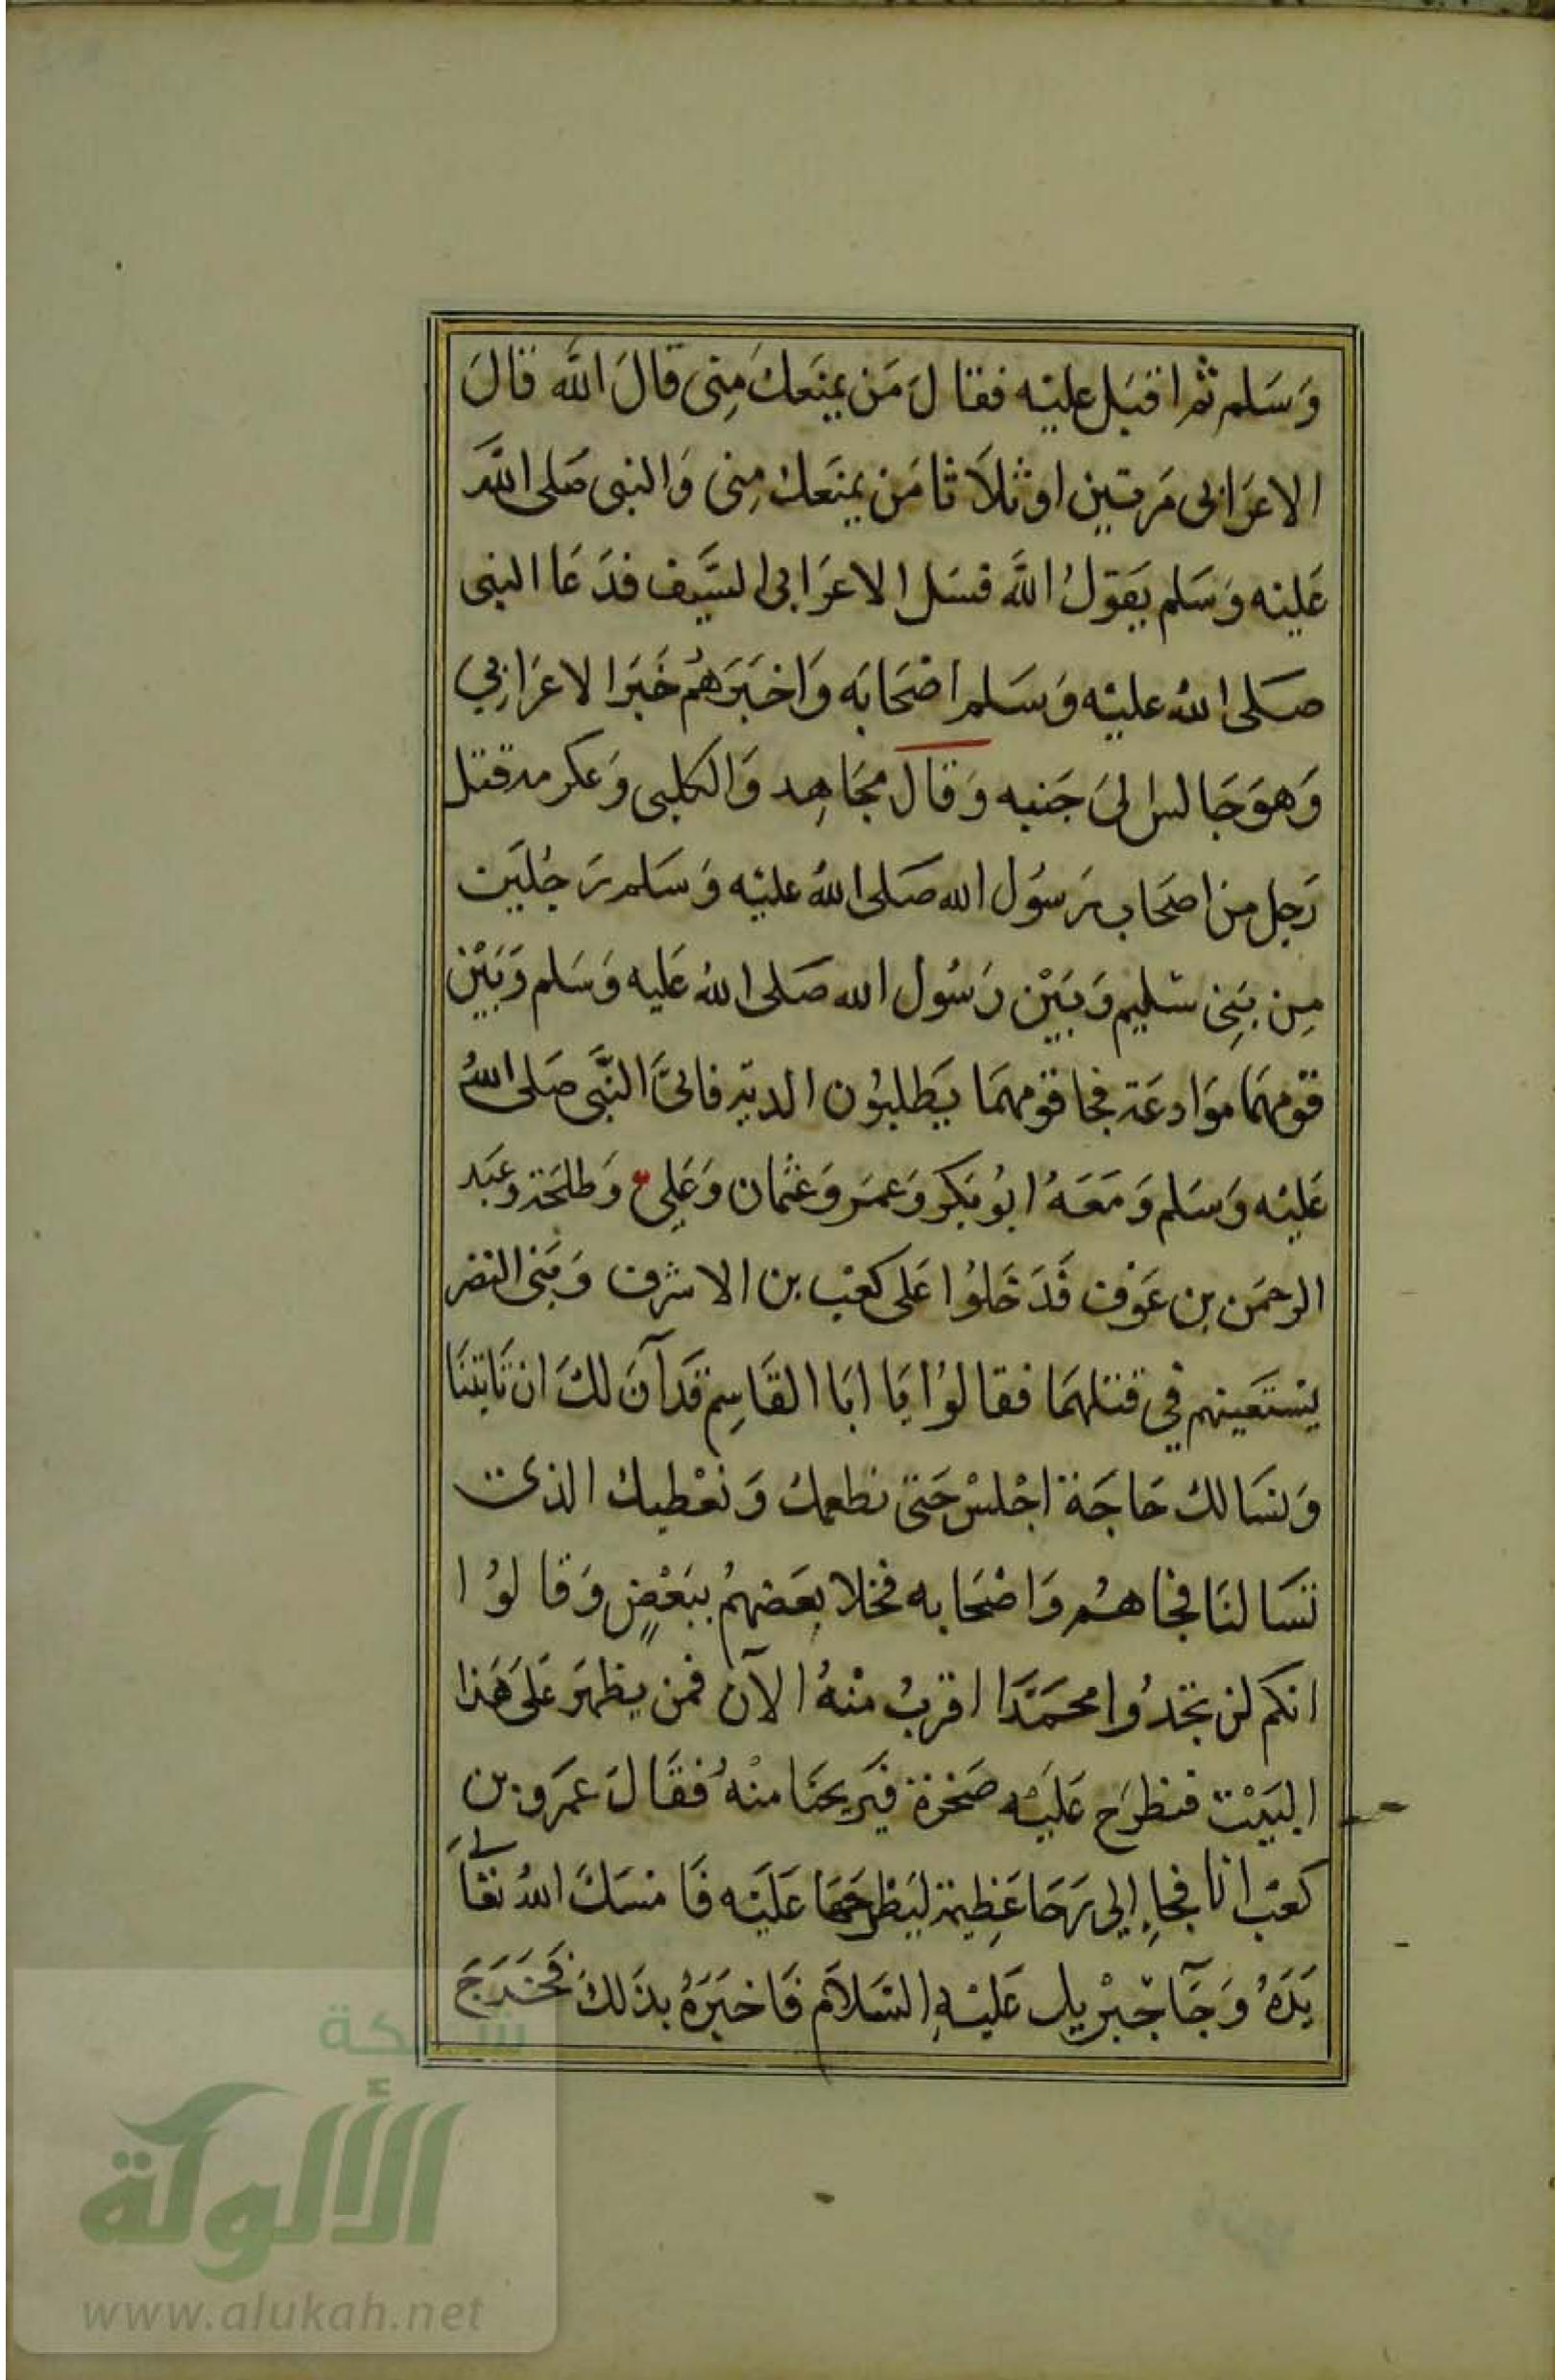 وَسَلم ثم اقبَل عليْه فقَالَ مَن يمنَعكَ مِنى قالَ الله قالَ
الاعرَابى مَرتين اوثلَاثا مَن يمنَعك مِنى وَالنبى صَلى الله
عَليْه وَسَلم يَقولُ الله فسَل الاعرَابى السَّيف فدَعَا النبى
صَلى اللهُ عليْه وَسَلم اصْحَابَه وَاخبَرَهُم خَبَر الاعرَابِي
وَهوَ جَالس الىَ جَنبه وَقالَ مجَاهِد وَالكلبى وَعكرمه قتل
رَجل مِن اصحَاب رَسُول الله صَلى اللهُ عليْه وَسَلم رَجُليَن
مِن بَنِى سُليم وَبَيْن رَسُول الله صَلى اللهُ عَليه وَسَلم وَبَيْن
قوْمهمَا موَادعَة فجا قوْمهمَا يَطلبُون الدية فاتىَ النَّبى صَلى اللهُ
عَليْه وَسَلم وَمَعَهُ ابُو بَكر وَعمَر وَعثْمان وَعَلِى وَطلحَة وعَبد
الرحمَن بن عَوْف فَدَخَلوُا عَلى كعْب بن الاشرف وَبَنى النضر
يسْتَعينهم فى قتلهمَا فقالوُا يَا ابَا القَاسِم قَد آنَ لكَ ان تَاتينَا
وَنسَالك حَاجَة اجْلسْ حَتى نطعمك وَنعْطيك الذى
تسَالنَا فجَا هُم وَاصْحَابه فخلا بعَضهُم ببَعْضٍ وَقالوُا
انكم لن تجدُوا محمَّدَا اقربُ منْهُ الآن فمن يظهَر عَلىَ هَذا
البَيْت فيَطرَح عَليْه صَخرَة فيَريحنَا منْهُ فقَالَ عمَرو بن
كعْب انا فجاءِ الي رَحَا عَظِيمَة ليَطرحَهَا عَليَه فَامْسَكَ اللهُ تعَالَى
يَدَهُ وَجَآ جبْريل عَليْهِ السَّلاَم فَاخبَرَهُ بذَلكَ فَخَرَجَ
شبكة
الألوكة
www.alukah.net